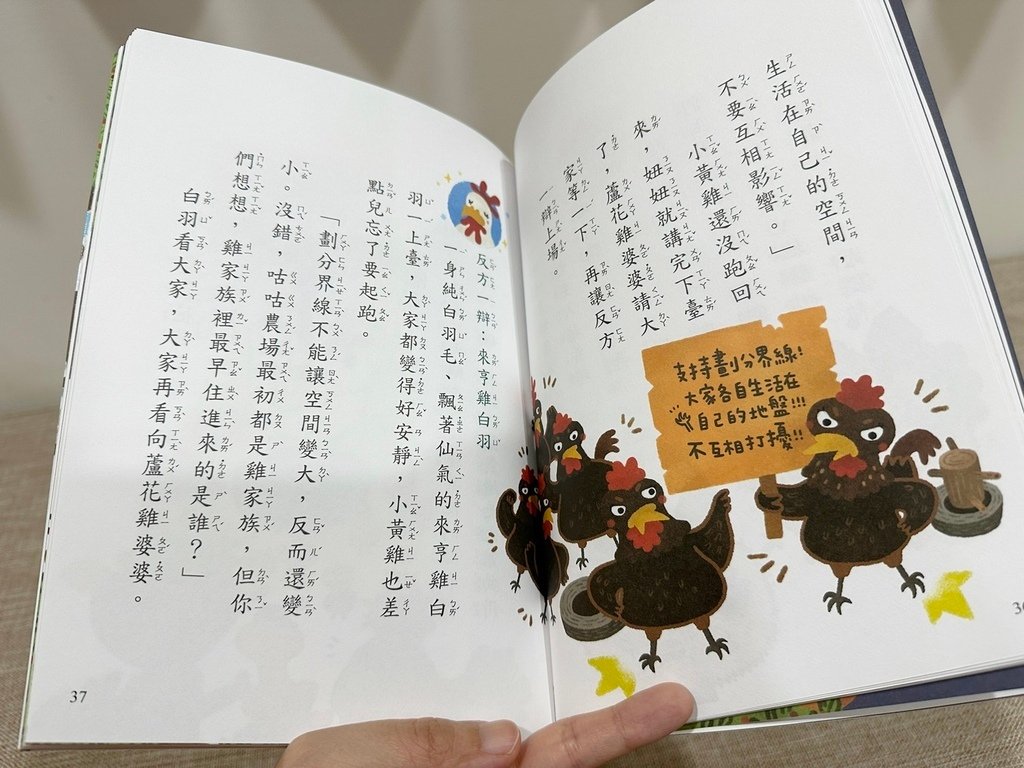 生活在自己的空間，
不要互相影響。」
小黃雞還沒跑回
來，妞妞就講完下臺
了，蘆花雞婆婆請大
家等一下，再讓反方
一辯上場。
支持劃分界線!
大家各自生活在
自己的地盤!!!
不互相打擾!!
反方一辯：來亨雞白羽
一身純白羽毛、飄著仙氣的來亨雞白
羽一上臺，大家都變得好安靜，小黃雞也差
點兒忘了要起跑。
「劃分界線不能讓空間變大，反而還變
小。沒錯，咕咕農場最初都是雞家族，但你
們想想，雞家族裡最早住進來的是誰？」
白羽看大家，大家再看向蘆花雞婆婆。
37